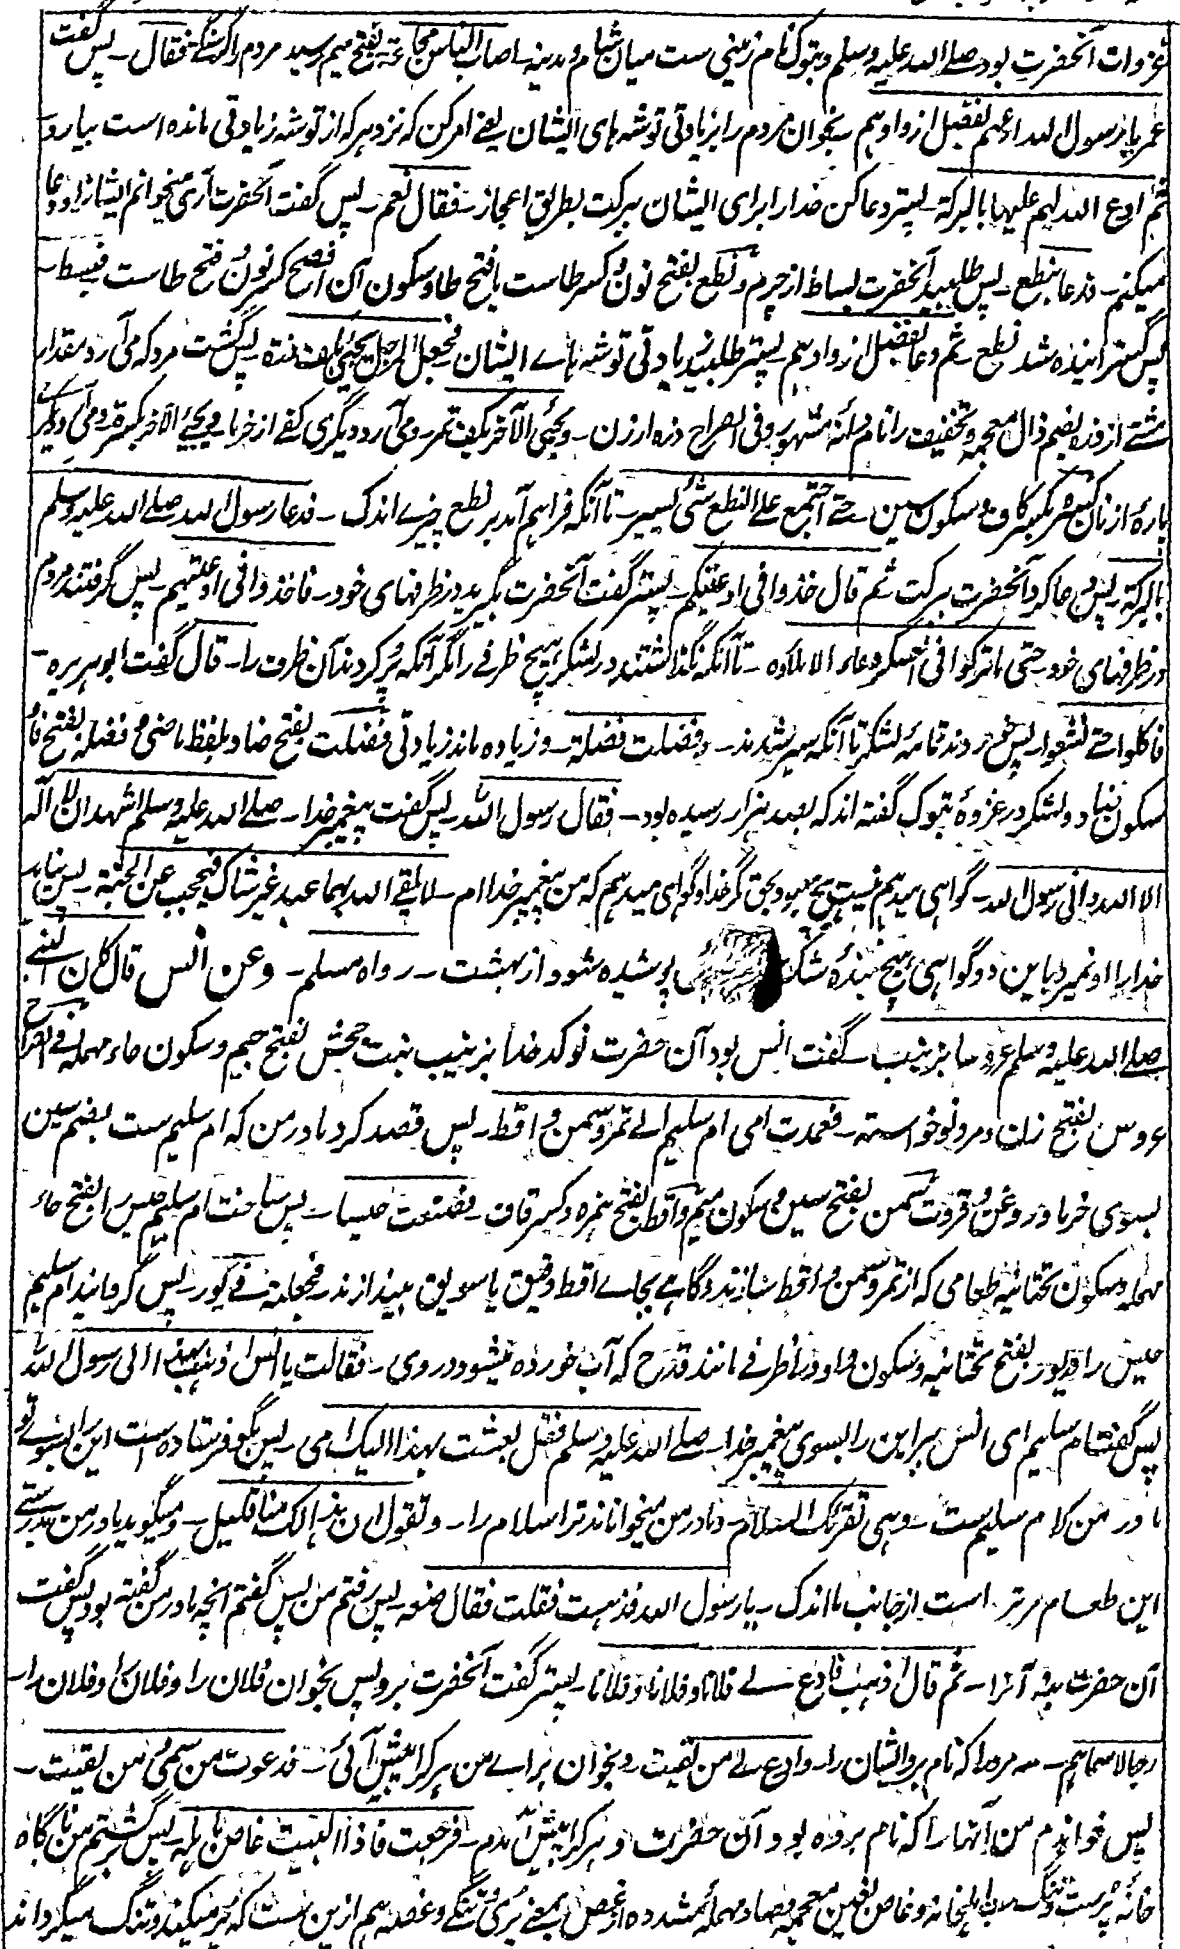 غزوات آنحضرت بود صلے اللہ علیہ وسلم و تبوک نام زمینی ست میان شام و مدینہ۔ اصاب الناس مجاعۃ بفتح میم رسید مردم را گرسنگی فقال۔ پس گفت
عمر یا رسول اللہ ادعہم بفضل ازوادہم بخوان مردم را بزیادتی توشہ ہای ایشان یعنے امر کن کہ نزد ہر کہ از توشہ زیادتی ماندہ است بیارد
ثم ادع اللہ لہم علیہا بالبرکۃ۔ پستر دعا کن خدا را برای ایشان ببرکت بطریق اعجاز۔ فقال نعم۔ پس گفت آنحضرت آری میخوانم ایشانرا و دعا
میکنم۔ فدعا بنطع۔ پس طلبید آنحضرت بساط از چرم و نطع بفتح نون و کسر طاست یا فتح طا و سکون آن افصح کسر نون و فتح طاست فبسط۔
پس گسترانیدہ شد نطع ثم دعا بفضل ازوادہم۔ پستر طلبید زیادتی توشہ ہاے ایشان فجعل الرجل یجئی بکف ذرۃ۔ پس گشت مرد کہ می آرد مقدار
مشتے از ذرہ بضم ذال معجمہ و تخفیف را نام دانہ مشہور و فی الصراح ذرہ ارزن۔ و یجئی الآخر بکف تمر۔ و می آرد دیگری کفے از خرما و یجئے الآخر بکسرۃ و می آرد دیگرے
پارۂ از نان کسرۃ بکسر کاف و سکون سین۔ حتے اجتمع علے النطع شئ یسیر۔ تا آنکہ فراہم آمد بر نطع چیزے اندک۔ فدعا رسول اللہ صلے اللہ علیہ وسلم
بالبرکۃ۔ پس دعا کرد آنحضرت ببرکت ثم قال خذوا فی اوعیتکم۔ پستر گفت آنحضرت بگیرید در ظرفہای خود۔ فاخذوا فی اوعیتہم۔ پس گرفتند مردم
در ظرفہای خود۔ حتی ما ترکوا فی العسکر وعاء الا ملاوہ۔ تا آنکہ نگذاشتند در لشکر ہیچ ظرفے را مگر آنکہ پر کردند آن ظرف را۔ قال گفت ابوہریرہ۔
فاکلوا حتے شبعوا۔ پس خوردند تمامۂ لشکر تا آنکہ سیر شدند۔ و فضلت فضلۃ۔ و زیادہ ماند زیادتی فضلت بفتح ضاد بلفظ ماضی و فضلہ بفتح فا و
سکون ضاد و لشکر در غزوۂ تبوک گفتہ اند کہ بصد ہزار رسیدہ بود۔ فقال رسول اللہ۔ پس گفت پیغمبر خدا۔ صلے اللہ علیہ وسلم اشہد ان لا الہ
الا اللہ و انی رسول اللہ۔ گواہی میدہم نیست ہیچ معبود بحق مگر خدا و گواہی میدہم کہ من پیغمبر خدا ام۔ لا یلقے اللہ بہما عبد غیر شاک فیحجب عن الجنۃ۔ پس نباید
خدا را و نمیرد باین دو گواہی ہیچ بندۂ پوشیدہ شود از بہشت۔ رواہ مسلم۔ وعن انس قال کان النبے
صلے اللہ علیہ وسلم عروسا بزینب۔ گفت انس بود آن حضرت نو کدخدا بزینب بنت جحش بفتح جیم و سکون حاء مہملہ فے الصراح
عروس بفتح زن و مرد نو خواستہ۔ فعمدت امی ام سلیم الے تمر و سمن و اقط۔ پس قصد کرد مادر من کہ ام سلیم ست بضم سین
بسوی خرما و روغن و قروت سمن بفتح سین و سکون میم و اقط بفتح ہمزہ و کسر قاف۔ فصنعت حیسا۔ پس ساخت ام سلیم حیس را بفتح حاء
مہملہ و سکون تحتانیہ طعامی کہ از تمر و سمن و اقط سازند و گاہے بجاے اقط دقیق یا سویق میندازند۔ فجعلتہ فے تور۔ پس گردانید ام سلیم
حیس را در تور بفتح تحتانیہ و سکون واو در ظرفے مانند قدح کہ آب خوردہ میشود در وی۔ فقالت یا انس اذہب بہذا الی رسول اللہ
پس گفت ام سلیم ای انس ببر این را بسوی پیغمبر خدا۔ صلے اللہ علیہ وسلم فقل بعثت بہذا الیک امی۔ پس بگو فرستادہ است این را بسوے تو
مادر من کہ ام سلیم ست۔ وہی تقرئک السلام۔ و مادر من میخواناند ترا سلام را۔ و تقول ان ہذا لک منا قلیل۔ و میگوید مادر من بدرستے
این طعام مر ترا است از جانب ما اندک۔ یا رسول اللہ فذہبت فقلت فقال ضعہ۔ پس رفتم من پس گفتم آنچہ مادر من گفتہ بود پس گفت
آن حضرت بنہ آنرا۔ ثم قال اذہب فادع لے فلانا و فلانا و فلانا۔ پستر گفت آنحضرت برو پس بخوان فلان را و فلان را و فلان را۔
رجالا سماہم۔ سہ مرد را کہ نام برد ایشان را۔ و ادع لے من لقیت۔ و بخوان براے من ہر کرا پیش آئی۔ فدعوت من سمی و من لقیت۔
پس خواندم من آنہا را کہ نام بردہ بود آن حضرت و ہر کرا پیش آمدم۔ فرجعت فاذا البیت غاص باہلہ۔ پس گشتم من ناگاہ
خانہ پر ست و تنگ ست باہل خانہ و غاص بغین معجمہ و صاد مہملہ مشددہ از غصص بمعنے پری و تنگے و غصہ ہم ازین ست کہ پر میکند و تنگ میگرداند